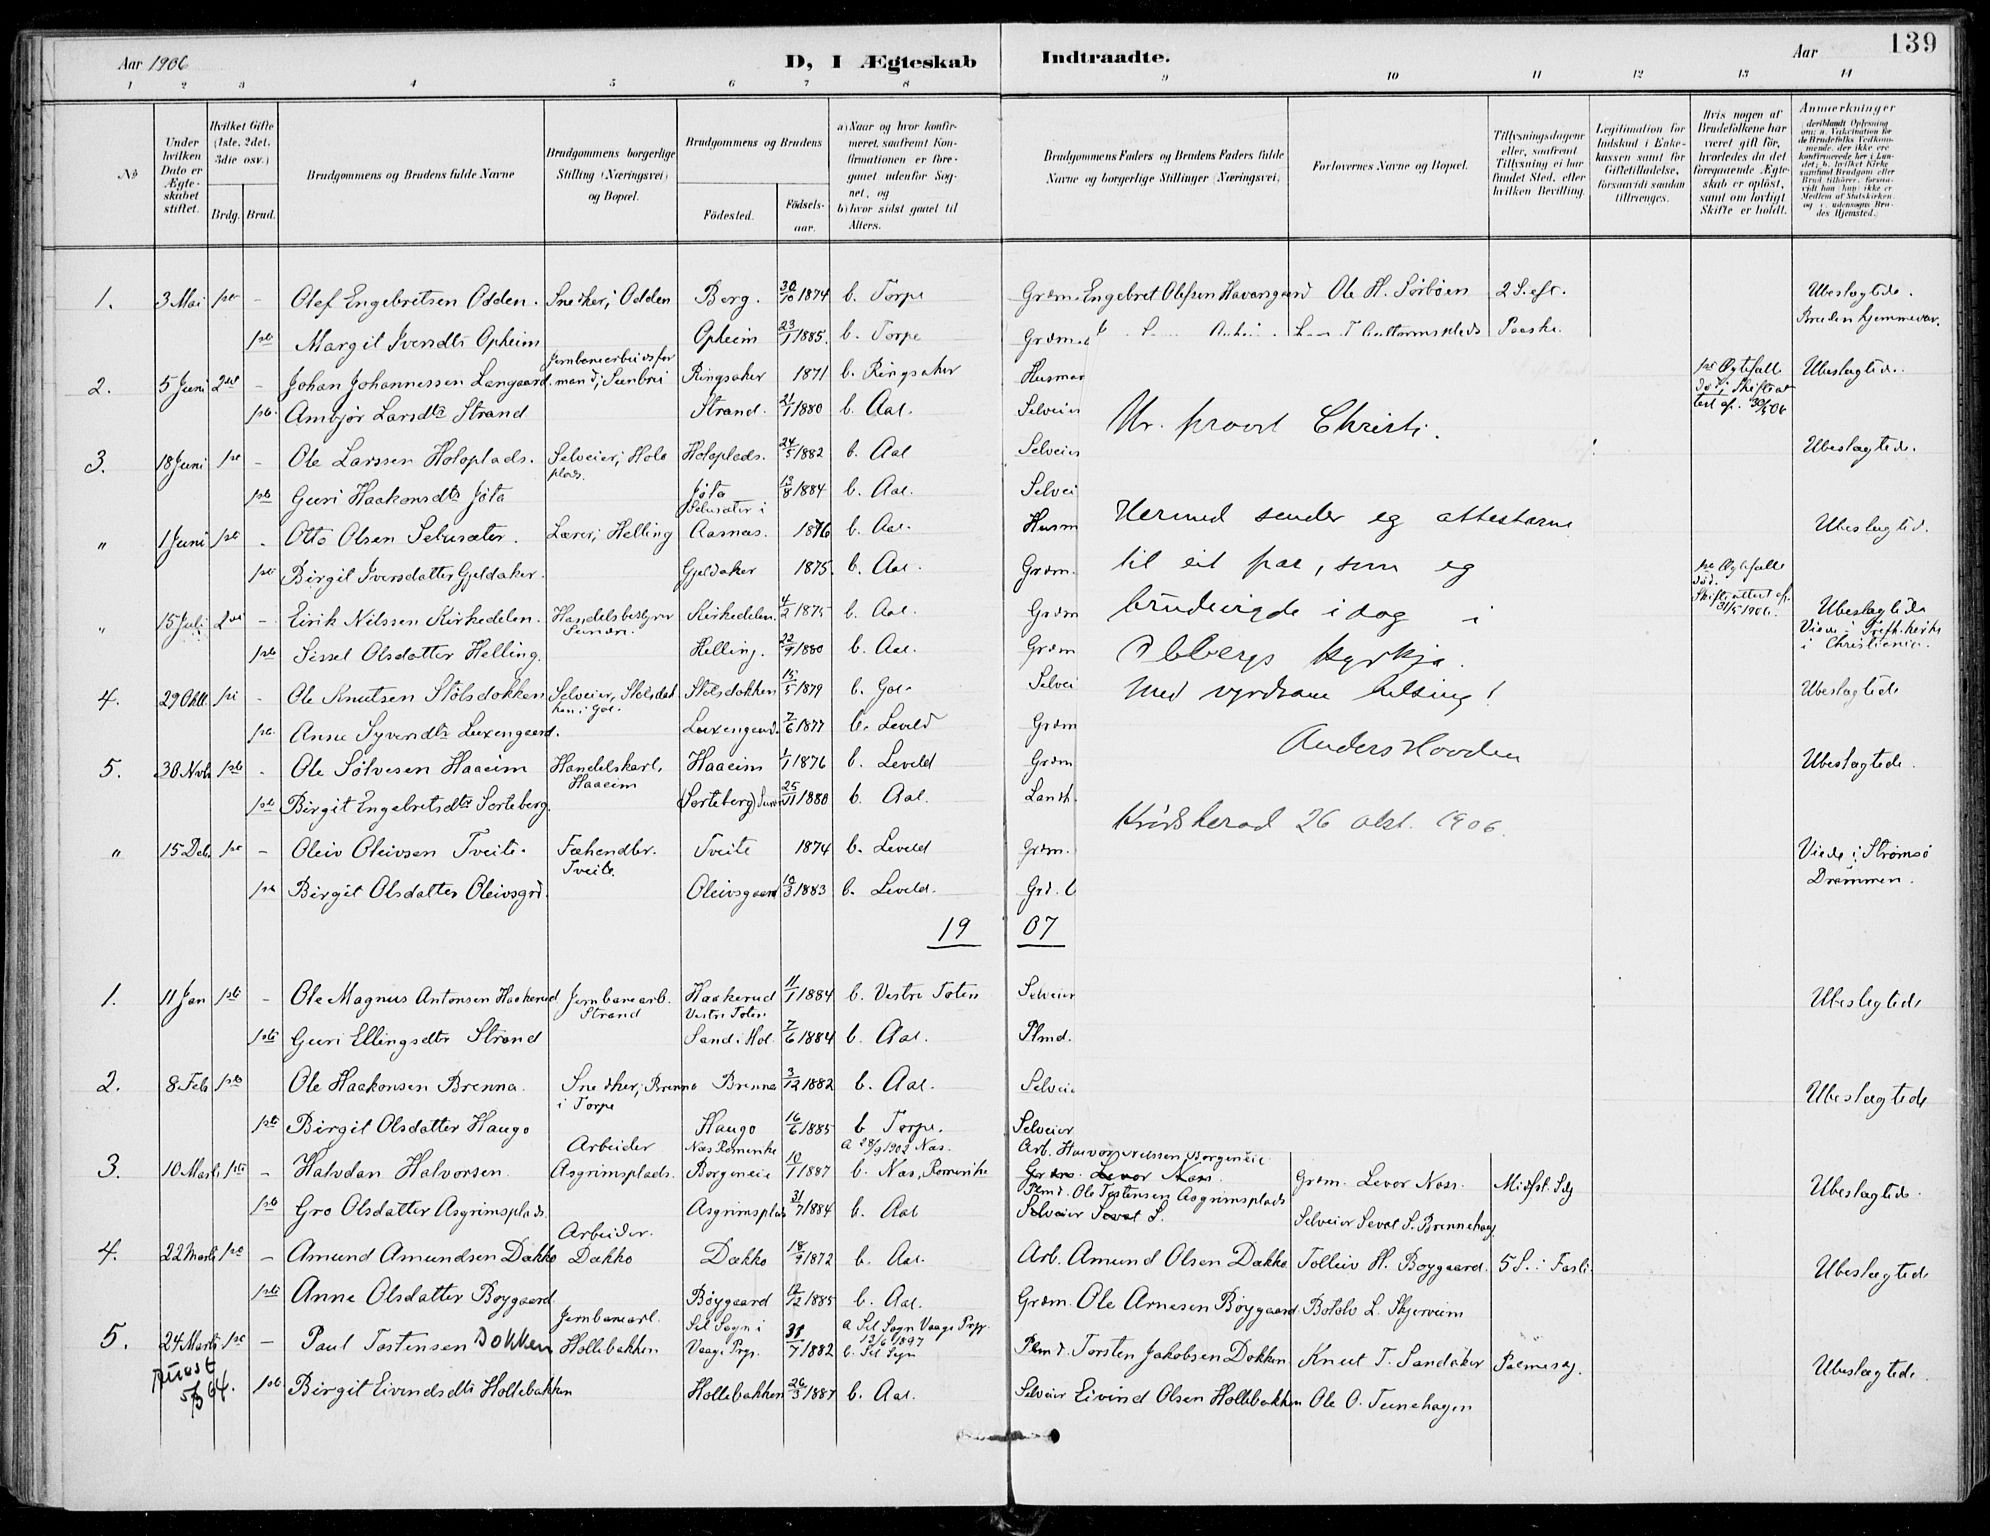 139
Aar 1906 D, I Ægteskab Indtraadte. Aar
1 2 3 4 5 6 7 8 9 10 11 12 13 14
№
Under hvilken Dato er Ægteskabet stiftet.
Hvilket Gifte (1ste, 2det, 3die osv.)
Brdg. Brud.
Brudgommens og Brudens fulde Navne
Brudgommens borgerlige Stilling (Næringsvei) og Bopæl.
Brudgommens og Brudens
Födested. Födselsaar.
a) Naar og hvor konfirmeret, saafremt Konfirmationen er foregaaet udenfor Sognet, og
b) hvor sidst gaaet til Alters.
Brudgommens Faders og Brudens Faders fulde Navne og borgerlige Stillinger (Næringsvei)
Forlovernes Navne og Bopæl.
Tillysningsdagene eller, saafremt Tillysning ei har fundet Sted, efter hvilken Bevilling.
Legitimation for Indskud i Enkekassen samt for Giftetilladelse, forsaavidt saadan tiltrænges.
Hvis nogen af Brudefolkene har været gift för, hvorledes da det foregaaende Ægteskab er oplöst, samt om lovligt Skifte er holdt.
Anmærkninger
1. 3 Mai 1ste - Olef Engebretsen Odden. Snedker, Odden Berg. 30/10 1874 b. Torpe Grdm. Engebret Olefsen Havarsgaard Ole H. Sørbøen 2 S. eft. Ubeslægtede.
1ste Margit Iversdtr Opheim Opheim 23/1 1885. b. Torpe Grdm. Paaske. Bruden hjemmevær.
2. 5 Juni 2det - Johan Johannessen Langaard. Jernbanearbeidsformand, Sunbrei Ringsaker 1871 b. Ringsaker Husmand 1ste Ægtefælle død, Skifteattest af 30/5 06 Ubeslægtede.
1ste Ambjør Larsdtr Strand Strand. 21/1 1880 b. Aal. Selveier
3. 18 Juni 1ste - Ole Larssen Holoplads. Selveier, Holoplads. Holoplads. 24/5 1882 b. Aal Selveier Ubeslægtede.
1ste Guri Haakonsdtr Jøta Jøta 13/8 1884 b. Aal. Selvei
" 1 Juni 1ste - Otto Olsen Sebusæter. Lærer, Helling Sebusæter i Aasnæs. 1876 b. Aal. Husm Ubeslægtede.
1ste Birgit Iversdatter Gjeldaker. Gjeldaker 1875. b. Aal. Grdm.
" 15 Juli 2det - Eirik Nilssen Kirkedelen. Handelsbestyrer Sundre. Kirkedelen. 4/2 1875 b. Aal. Grdm 1ste Ægtefælle død. Skifteattest af 31/5 1906. Ubeslægtede
Viede i Trefk. kirke i Christiania.
1ste Sissel Olsdatter Helling. Helling. 22/9 1880 b. Aal. Grdm
4. 29 Okt. 1ste - Ole Knutsen Stølsdokken Selveier, Stølsdokken i Gol. Stølsdokken 15/5 1879 b. Gol. Selvei Ubeslægtede
1ste Anne Syversdtr Luxengaard. Luxengaard. 7/6 1877 b. Leveld Grdm
5. 30 Novb 1ste - Ole Sølvesen Haaeim Handelskarl, Haaeim Haaeim 1/1 1876 b. Leveld Grdm Ubeslægtede.
1ste Birgit Engebretsdtr Sorteberg. (Sorteberg) 25/11 1880 b. Aal. Landh.
" 15 Deb. 1ste - Oleiv Oleivsen Tveite. Fæhandler. Tveite. Tveite 1874 b. Leveld Grdm. Viede i Strømsø Drammen.
1ste Birgit Olsdatter Oleivsgrd. Oleivsgaard 10/3 1883 b. Leveld. Grd. b
Hr. provst Christi.
Hermed sender eg attestarne
til eit par, som eg
brudevigde i dag i
Olbergs kyrkja.
Med vyrdsam helsing!
Anders Hovden
Krødsherad 26 okt. 1906.
19 07
1. 11 Jan 1ste - Ole Magnus Antonsen Haakerud Jernbanearb. Strand Haakerud Vestre Toten 11/1 1884 b. Vestre Toten Selveier Ubeslægtede
1ste Guri Ellingsdtr Strand Sand i Hol. 7/6 1884 b. Aal. Plmd.
2. 8 Feb 1ste Ole Haakonsen Brenna. Snedker, Brenna i Torpe Brenna 3/12 1882 b. Aal. Selveie Ubeslægtede
1ste Birgit Olsdatter Haugo Haugo 16/6 1885 b Torpe. Selveier
3. 10 Marts 1ste - Halvdan Halvorsen. Arbeider Asgrimsplads. Næs Romerike Borgeneie 10/1 1887 a 28/9 1902 Næs. b. Næs, Romerike Arb. Halvor Nilssen Borgeneie Grdm. Levor Næss. Grdm. Levor Næss. Midfst. Sdg Ubeslægtede.
1ste Gro Olsdatter Asgrimsplads. Asgrimsplads 31/7 1884 b. Aal Plmd. Ole Tostensen Asgrimsplads Selveier Sevat S. Selveier Sevat S. Brennehaug
4. 22 Marts 1ste - Amund Amundsen Dækko Arbeider. Dækko Dækko 18/9 1872 b. Aal. Arb. Amund Olsen Dækko. Tolleiv H. Bøygaard. 5 S. i Faste. Ubeslægtede
1ste Anne Olsdatter Bøygaard. Bøygaard 12/12 1885 b. Aal. Grdm. Ole Arnesen Bøygaard. Botolv L. Skjerveim
5. 24 Marts 1ste - Paul Tostensen Dokken Jernbanearb. Hollebakken Sel Sogn i Vaage Prgj. 31/7 1882 a Sel Sogn Vaage Prgj. 13/6 1897 b. Sel Sogn Plmd. Torsten Jakobsen Dokken Knut T. Sandaker Palmesdg. Ubeslægtede.
1ste Birgit Eivindsdtr Hollebakken Hollebakken 26/3 1887 b. Aal. Selveier Eivind Olsen Hollebakken Ole O. Tunehagen